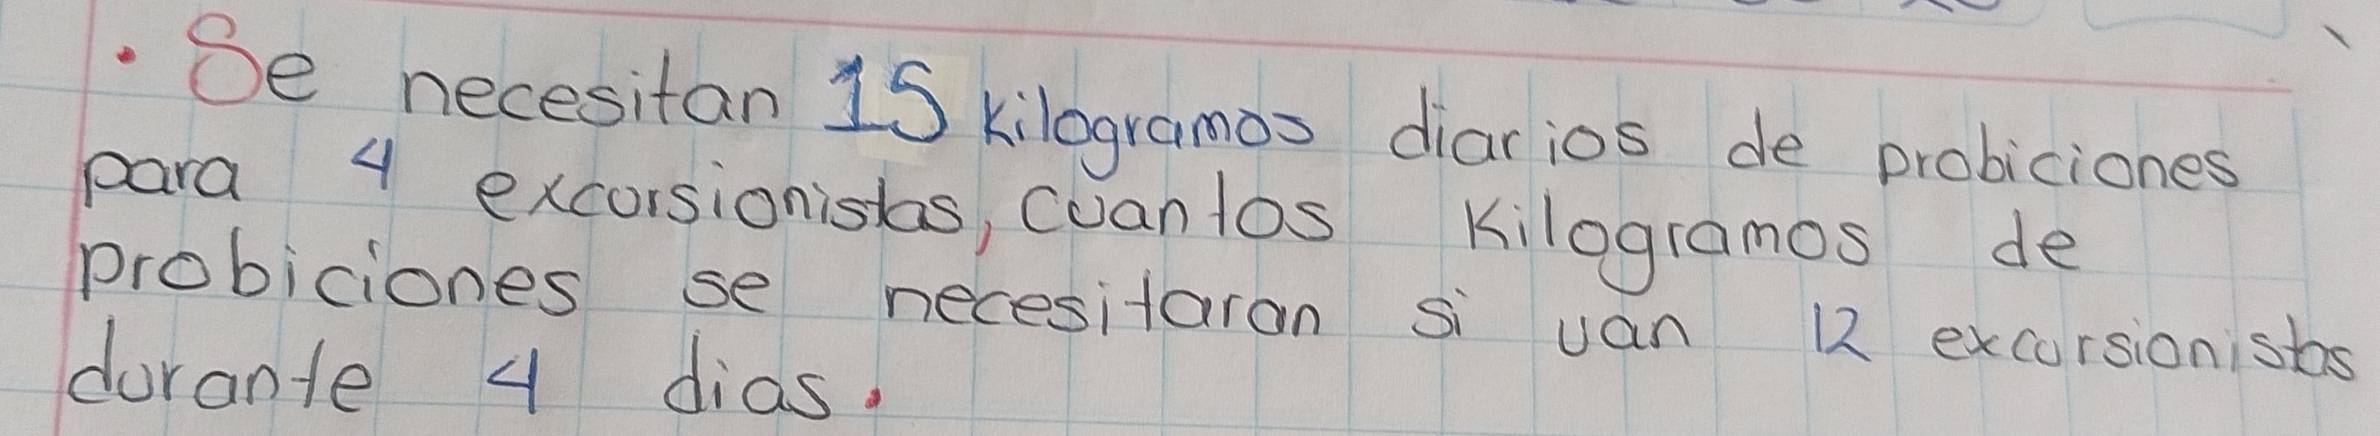 · Se necesitan 15 kilogramos diarios de probiciones
para 4 excursionistas, cuantos kilogramos de
probiciones se necesitaran si van 12 excursionistas
durante 4 dias.